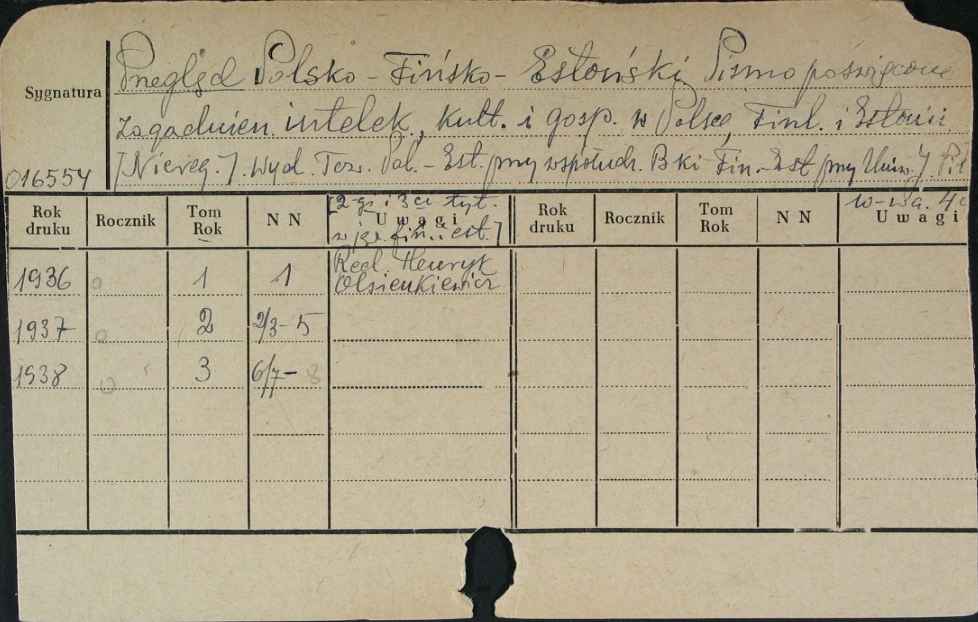 Sygnatura
016554
Przegląd Polsko-Fińsko-Estoński Pismo poświęcone
zagadnien. intelek., kult. i gosp. w Polsce, Finl. i Estonii
[Niereg.] wyd. Tow. Pol.-Est. przy współudz. B-ki Fin.-Est przy Uniw. J. Pił
W-wa. 4º
Rok druku Rocznik Tom Rok NN Uwagi Rok druku Rocznik Tom Rok NN Uwagi
[2-gi i 3ci tyt.
w jęz. fiń. i est.]
1936 o 1 1 Red. Henryk
Olsienkiewicz
1937 o 2 2/3-5
1938 o 3 6/7-8